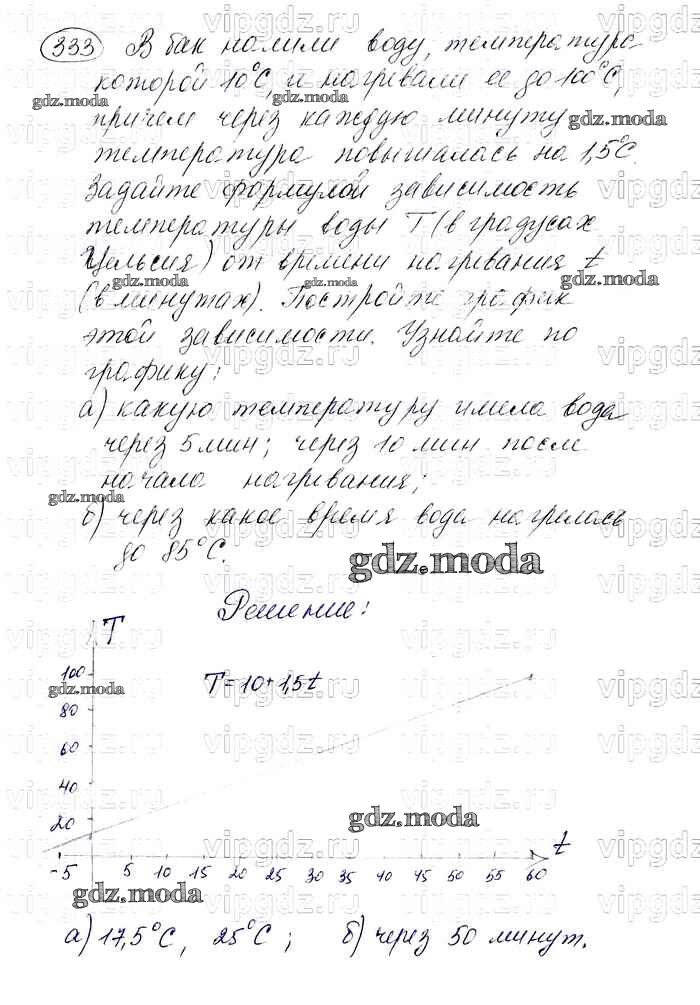 333 В бак налили воду, температура
которой 10°С, и нагревали ее до 100°С,
gdz.moda
причем через каждую минуту gdz.moda
температура повышалась на 1,5°С.
Задайте формулой зависимость
температуры воды Т (в градусах
Цельсия) от времени нагревания t
gdz.moda gdz.moda
(в минутах). Постройте график
этой зависимости. Узнайте по
графику:
а) какую температуру имела вода
через 5 мин; через 10 мин после
начала нагревания;
gdz.moda
б) через какое время вода нагрелась
до 85°С.
gdz.moda
Решение:
T
100
T=10+1,5t
gdz.moda
80
60
40
gdz.moda
20
t
-5 5 10 15 20 25 30 35 40 45 50 55 60
gdz.moda
а) 17,5°С, 25°С; б) через 50 минут.
vipgdz.ru